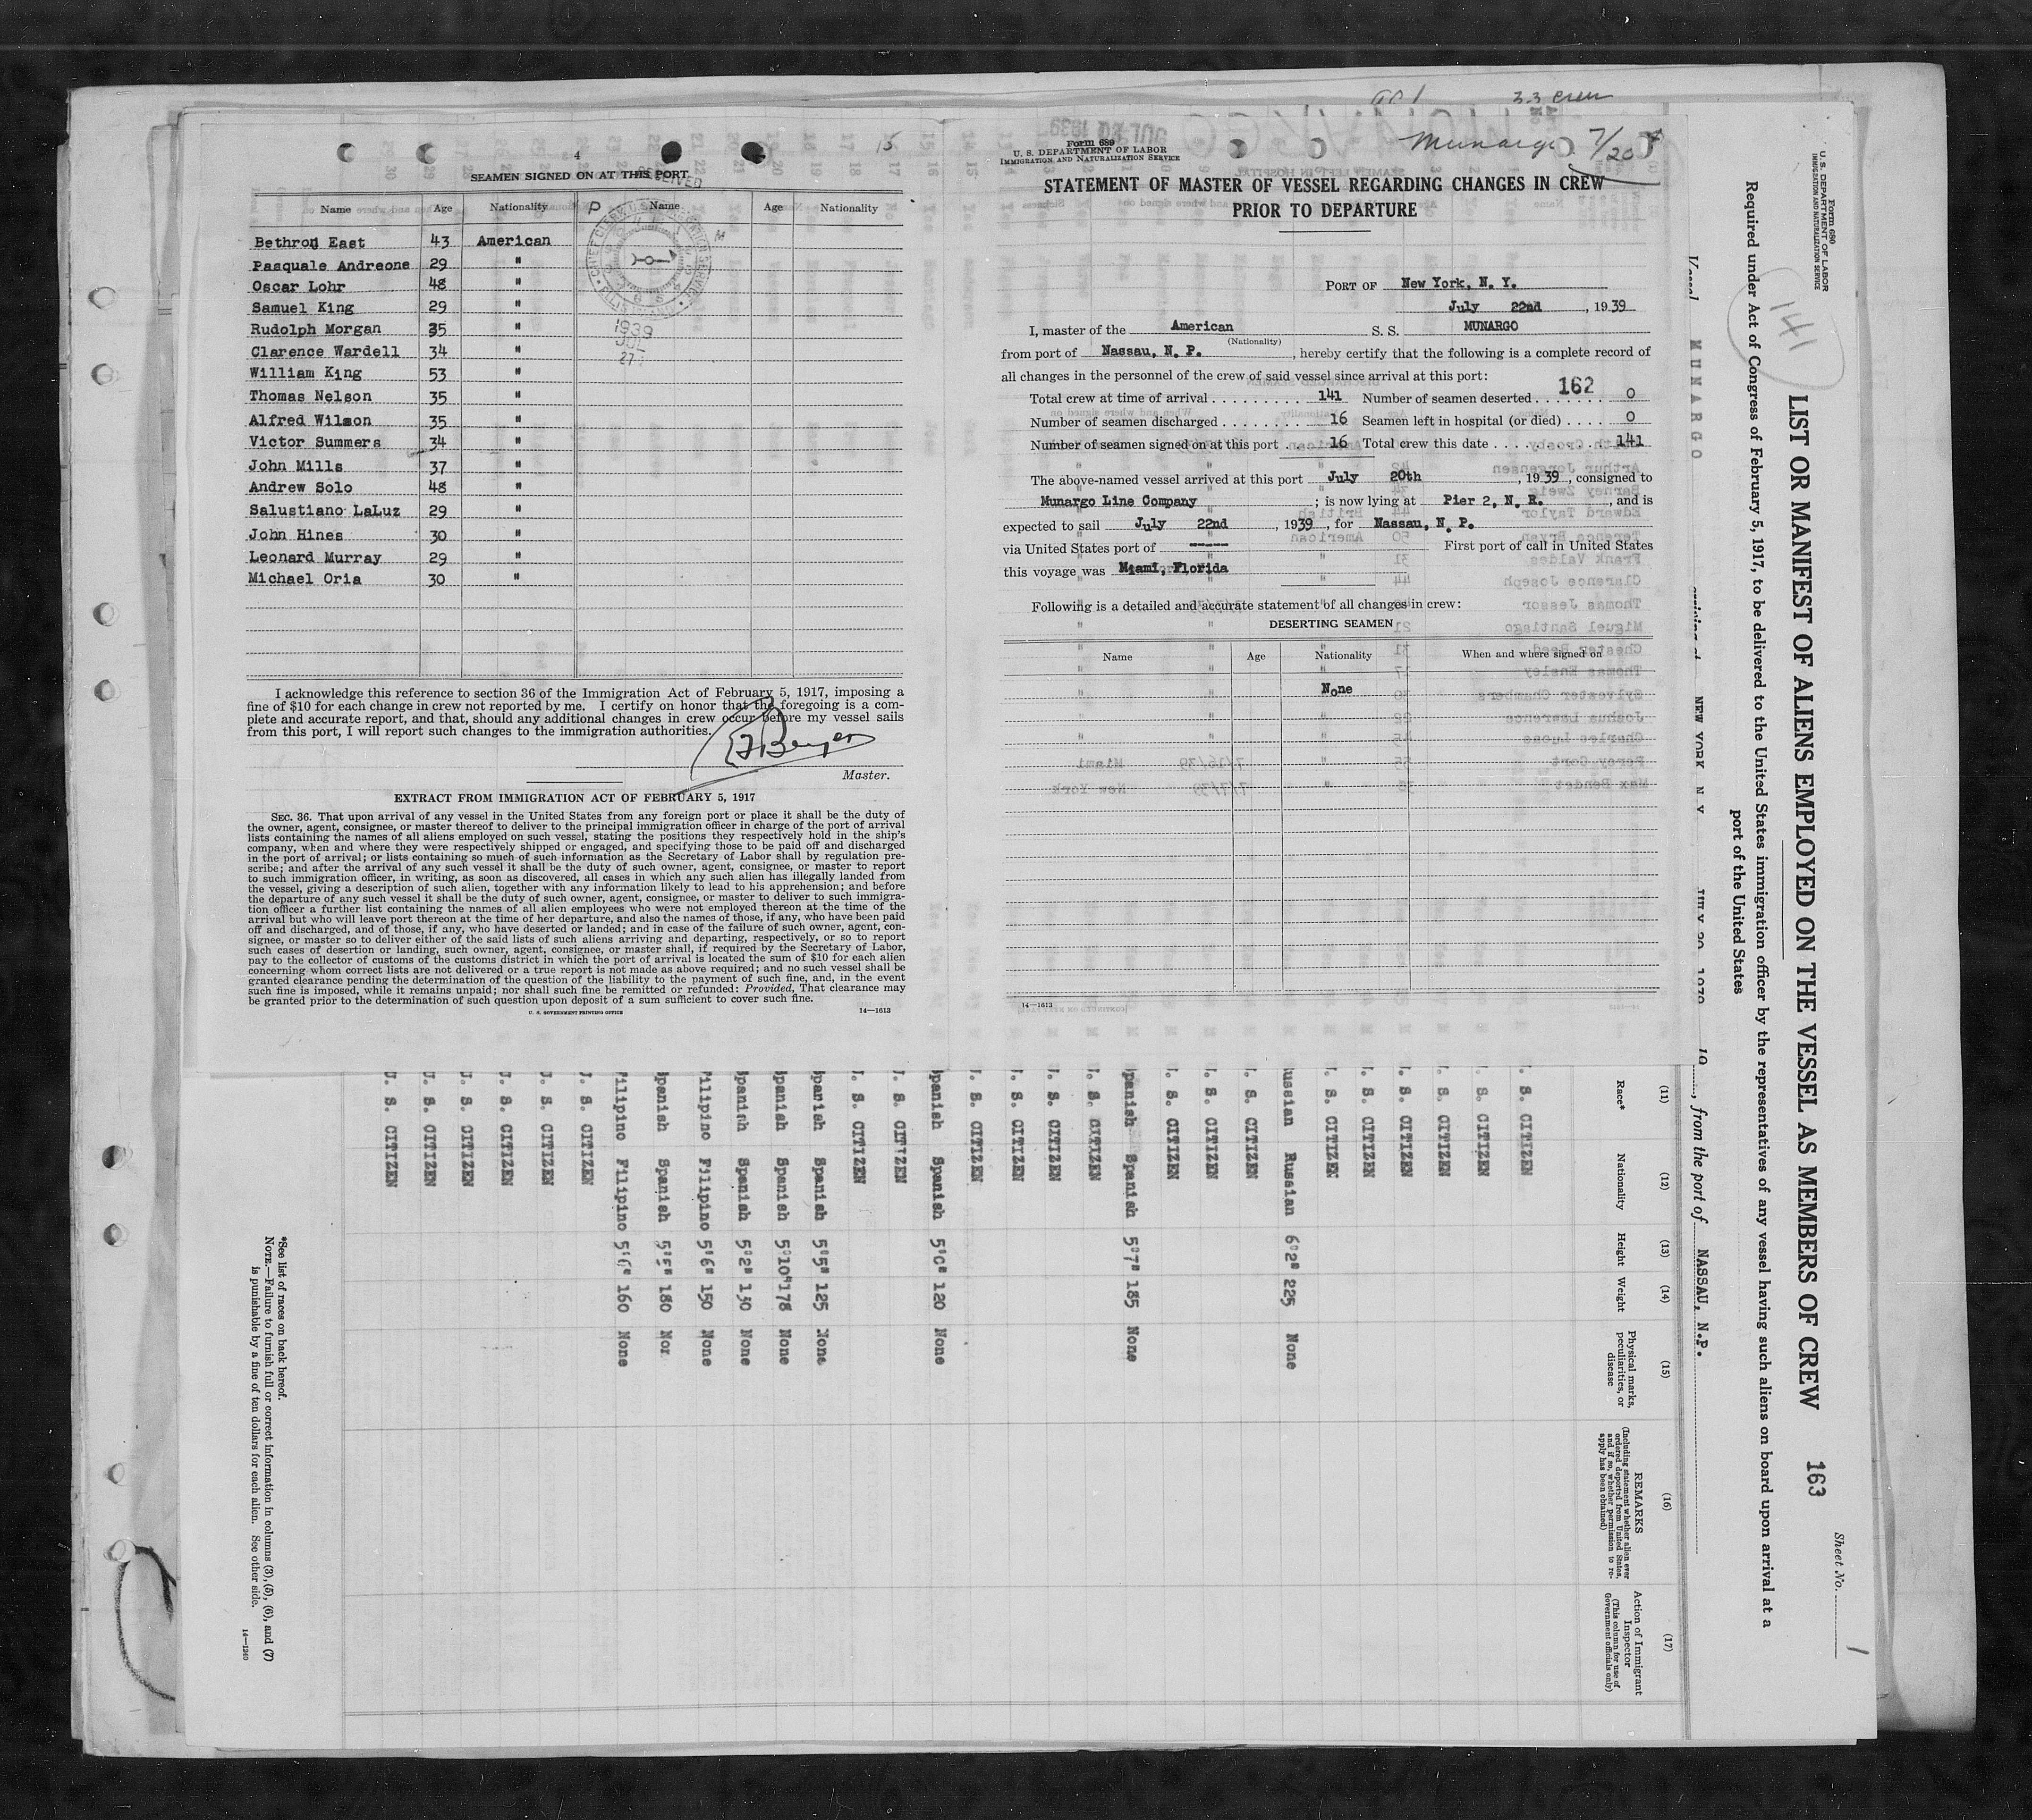 33 crew
4
15
SEAMEN SIGNED ON AT THIS PORT
RECEIVED
Name Age Nationality Name Age Nationality
Bethron East 43 American
Pasquale Andreone 29 "
Oscar Lohr 48 "
Samuel King 29 "
Rudolph Morgan 35 "
Clarence Wardell 34 "
William King 53 "
Thomas Nelson 35 "
Alfred Wilson 35 "
Victor Summers 34 "
John Mills 37 "
Andrew Solo 48 "
Salustiano LaLuz 29 "
John Hines 30 "
Leonard Murray 29 "
Michael Oria 30 "
P
M
1939
JUL
27
I acknowledge this reference to section 36 of the Immigration Act of February 5, 1917, imposing a
fine of $10 for each change in crew not reported by me. I certify on honor that the foregoing is a com-
plete and accurate report, and that, should any additional changes in crew occur before my vessel sails
from this port, I will report such changes to the immigration authorities.
Master.
EXTRACT FROM IMMIGRATION ACT OF FEBRUARY 5, 1917
SEC. 36. That upon arrival of any vessel in the United States from any foreign port or place it shall be the duty of
the owner, agent, consignee, or master thereof to deliver to the principal immigration officer in charge of the port of arrival
lists containing the names of all aliens employed on such vessel, stating the positions they respectively hold in the ship's
company, when and where they were respectively shipped or engaged, and specifying those to be paid off and discharged
in the port of arrival; or lists containing so much of such information as the Secretary of Labor shall by regulation pre-
scribe; and after the arrival of any such vessel it shall be the duty of such owner, agent, consignee, or master to report
to such immigration officer, in writing, as soon as discovered, all cases in which any such alien has illegally landed from
the vessel, giving a description of such alien, together with any information likely to lead to his apprehension; and before
the departure of any such vessel it shall be the duty of such owner, agent, consignee, or master to deliver to such immigra-
tion officer a further list containing the names of all alien employees who were not employed thereon at the time of the
arrival but who will leave port thereon at the time of her departure, and also the names of those, if any, who have been paid
off and discharged, and of those, if any, who have deserted or landed; and in case of the failure of such owner, agent, con-
signee, or master so to deliver either of the said lists of such aliens arriving and departing, respectively, or so to report
such cases of desertion or landing, such owner, agent, consignee, or master shall, if required by the Secretary of Labor,
pay to the collector of customs of the customs district in which the port of arrival is located the sum of $10 for each alien
concerning whom correct lists are not delivered or a true report is not made as above required; and no such vessel shall be
granted clearance pending the determination of the question of the liability to the payment of such fine, and, in the event
such fine is imposed, while it remains unpaid; nor shall such fine be remitted or refunded: Provided, That clearance may
be granted prior to the determination of such question upon deposit of a sum sufficient to cover such fine.
U. S. GOVERNMENT PRINTING OFFICE 14—1613
Form 689
U. S. DEPARTMENT OF LABOR
IMMIGRATION AND NATURALIZATION SERVICE
Munargo 7/20
STATEMENT OF MASTER OF VESSEL REGARDING CHANGES IN CREW
PRIOR TO DEPARTURE
PORT OF New York, N. Y.
July 22nd, 1939
I, master of the American S. S. MUNARGO
(Nationality)
from port of Nassau, N. P., hereby certify that the following is a complete record of
all changes in the personnel of the crew of said vessel since arrival at this port:
162
Total crew at time of arrival 141 Number of seamen deserted 0
Number of seamen discharged 16 Seamen left in hospital (or died) 0
Number of seamen signed on at this port 16 Total crew this date 141
The above-named vessel arrived at this port July 20th, 1939, consigned to
Munargo Line Company; is now lying at Pier 2, N. R., and is
expected to sail July 22nd, 1939, for Nassau, N. P.
via United States port of ----- First port of call in United States
this voyage was Miami, Florida
Following is a detailed and accurate statement of all changes in crew:
DESERTING SEAMEN
Name Age Nationality When and where signed on
None
14—1613
Form 680
U. S. DEPARTMENT OF LABOR
IMMIGRATION AND NATURALIZATION SERVICE
141
LIST OR MANIFEST OF ALIENS EMPLOYED ON THE VESSEL AS MEMBERS OF CREW
163
Sheet No. 1
Required under Act of Congress of February 5, 1917, to be delivered to the United States immigration officer by the representatives of any vessel having such aliens on board upon arrival at a
port of the United States
Vessel MUNARGO arriving at NEW YORK N Y JULY 20 1939 19, from the port of NASSAU, N.P.
(11) (12) (13) (14) (15) (16) (17)
Race* Nationality Height Weight Physical marks, peculiarities, or disease
REMARKS
(Including statement whether alien ever ordered deported from United States, and if so, whether permission to re-apply has been obtained)
Action of Immigrant Inspector
(This column for use of Government officials only)
. S. CITIZEN
. S. CITIZEN
. S. CITIZEN
. S. CITIZEN
. S. CITIZEN
. S. CITIZEN
ussian Russian 6'2" 225 None
. S. CITIZEN
. S. CITIZEN
. S. CITIZEN
panish Spanish 5'7" 185 None
. S. CITIZEN
. S. CITIZEN
. S. CITIZEN
. S. CITIZEN
panish Spanish 5'0" 120 None
. S. CITIZEN
. S. CITIZEN
panish Spanish 5'5" 125 None
panish Spanish 5'10" 178 None
panish Spanish 5'2" 130 None
ilipino Filipino 5'6" 150 None
panish Spanish 5'5" 180 Non
ilipino Filipino 5'6" 160 None
. S. CITIZEN
. S. CITIZEN
. S. CITIZEN
. S. CITIZEN
. S. CITIZEN
. S. CITIZEN
*See list of races on back hereof.
NOTE.—Failure to furnish full or correct information in columns (3), (5), (6), and (7)
is punishable by a fine of ten dollars for each alien. See other side.
14—1240